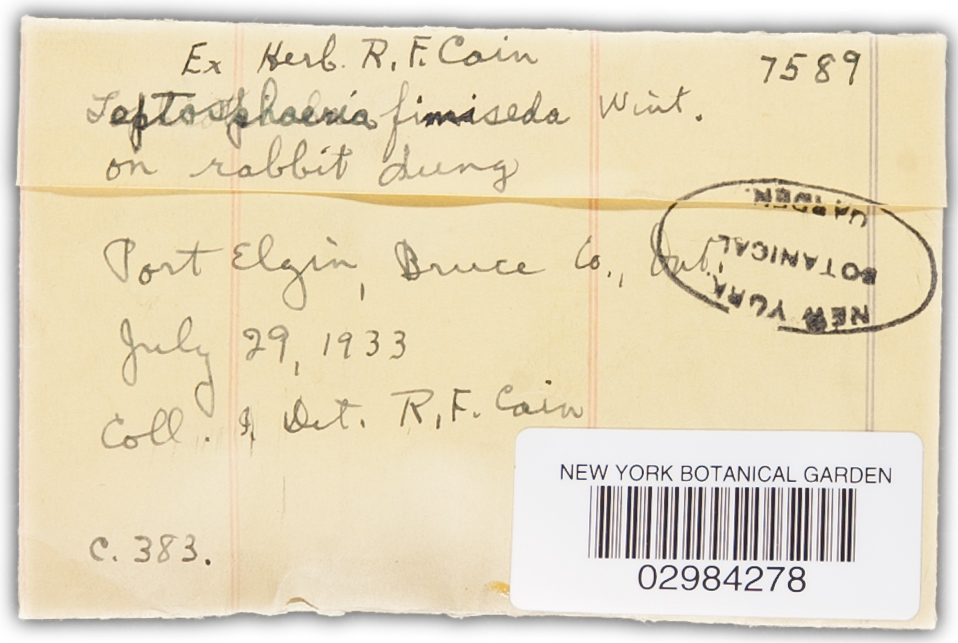 Ex Herb. R. F. Cain
7589
Leptosphaeria fimiseda Wint.
on rabbit dung
NEW YORK
BOTANICAL
GARDEN.
Port Elgin, Bruce Co., Ont.
July 29, 1933
Coll. & Det. R. F. Cain
C. 383.
NEW YORK BOTANICAL GARDEN
02984278